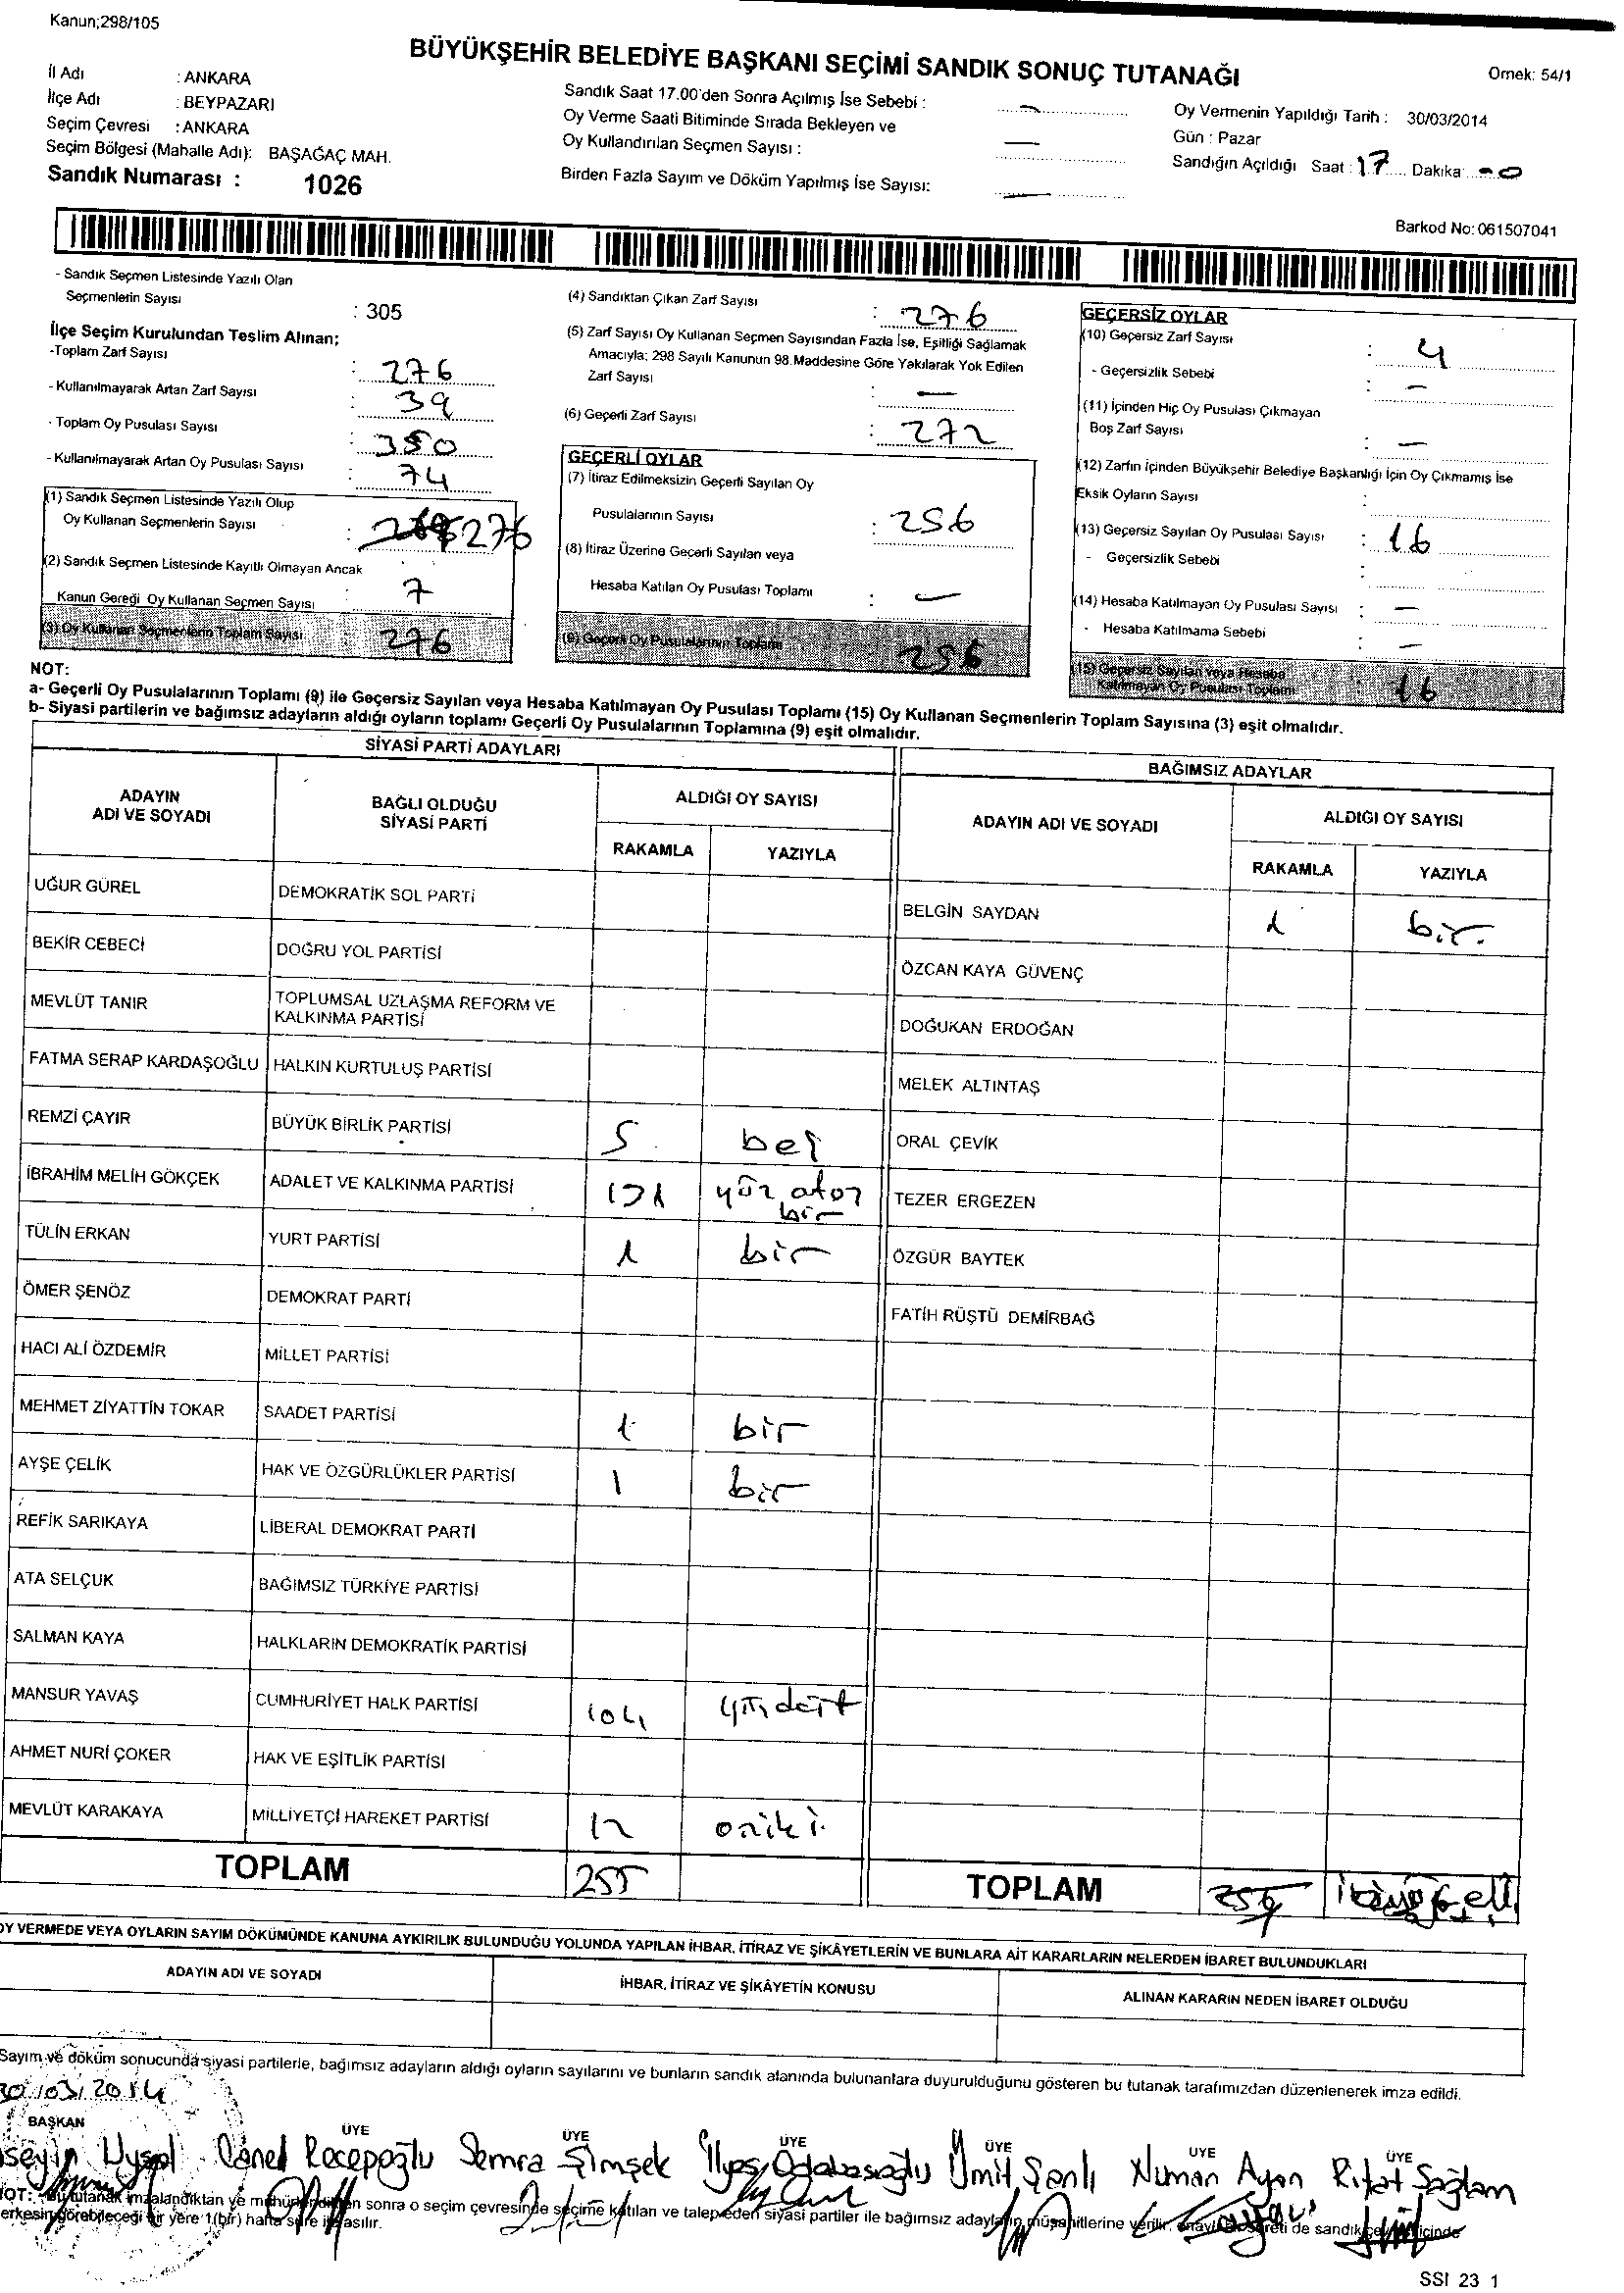 Kanun;298/105
BÜYÜKŞEHİR BELEDİYE BAŞKANI SEÇİMİ SANDIK SONUÇ TUTANAĞI
Ornek: 54/1
İl Adı : ANKARA
İlçe Adı : BEYPAZARI
Seçim Çevresi : ANKARA
Seçim Bölgesi (Mahalle Adı): BAŞAĞAÇ MAH.
Sandık Numarası : 1026
Sandık Saat 17.00'den Sonra Açılmış İse Sebebi : —
Oy Verme Saati Bitiminde Sırada Bekleyen ve
Oy Kullandırılan Seçmen Sayısı : —
Birden Fazla Sayım ve Döküm Yapılmış İse Sayısı: —
Oy Vermenin Yapıldığı Tarih : 30/03/2014
Gün : Pazar
Sandığın Açıldığı Saat : 17 Dakika
Barkod No: 061507041
- Sandık Seçmen Listesinde Yazılı Olan
Seçmenlerin Sayısı : 305
İlçe Seçim Kurulundan Teslim Alınan;
-Toplam Zarf Sayısı : 276
- Kullanılmayarak Artan Zarf Sayısı : 39
- Toplam Oy Pusulası Sayısı : 350
- Kullanılmayarak Artan Oy Pusulası Sayısı : 74
(1) Sandık Seçmen Listesinde Yazılı Olup
Oy Kullanan Seçmenlerin Sayısı : 276
(2) Sandık Seçmen Listesinde Kayıtlı Olmayan Ancak
Kanun Gereği Oy Kullanan Seçmen Sayısı : 7
(3) Oy Kullanan Seçmenlerin Toplam Sayısı : 276
(4) Sandıktan Çıkan Zarf Sayısı : 276
(5) Zarf Sayısı Oy Kullanan Seçmen Sayısından Fazla İse, Eşitliği Sağlamak
Amacıyla; 298 Sayılı Kanunun 98.Maddesine Göre Yakılarak Yok Edilen
Zarf Sayısı : —
(6) Geçerli Zarf Sayısı : 272
GEÇERLİ OYLAR
(7) İtiraz Edilmeksizin Geçerli Sayılan Oy
Pusulalarının Sayısı : 256
(8) İtiraz Üzerine Geçerli Sayılan veya
Hesaba Katılan Oy Pusulası Toplamı : —
(9) Geçerli Oy Pusulalarının Toplamı 256
GEÇERSİZ OYLAR
(10) Geçersiz Zarf Sayısı : 4
- Geçersizlik Sebebi : —
(11) İçinden Hiç Oy Pusulası Çıkmayan
Boş Zarf Sayısı : —
(12) Zarfın İçinden Büyükşehir Belediye Başkanlığı İçin Oy Çıkmamış İse
Eksik Oyların Sayısı :
(13) Geçersiz Sayılan Oy Pusulası Sayısı : 16
- Geçersizlik Sebebi :
(14) Hesaba Katılmayan Oy Pusulası Sayısı : —
- Hesaba Katılmama Sebebi : —
(15) Geçersiz Sayılan veya Hesaba
Katılmayan Oy Pusulası Toplamı : 16
NOT:
a- Geçerli Oy Pusulalarının Toplamı (9) ile Geçersiz Sayılan veya Hesaba Katılmayan Oy Pusulası Toplamı (15) Oy Kullanan Seçmenlerin Toplam Sayısına (3) eşit olmalıdır.
b- Siyasi partilerin ve bağımsız adayların aldığı oyların toplamı Geçerli Oy Pusulalarının Toplamına (9) eşit olmalıdır.
SİYASİ PARTİ ADAYLARI
ADAYIN ADI VE SOYADI BAĞLI OLDUĞU SİYASİ PARTİ ALDIĞI OY SAYISI
RAKAMLA YAZIYLA
UĞUR GÜREL DEMOKRATİK SOL PARTİ
BEKİR CEBECİ DOĞRU YOL PARTİSİ
MEVLÜT TANIR TOPLUMSAL UZLAŞMA REFORM VE KALKINMA PARTİSİ
FATMA SERAP KARDAŞOĞLU HALKIN KURTULUŞ PARTİSİ
REMZİ ÇAYIR BÜYÜK BİRLİK PARTİSİ 5 beş
İBRAHİM MELİH GÖKÇEK ADALET VE KALKINMA PARTİSİ 131 yüz otuz bir
TÜLİN ERKAN YURT PARTİSİ 1 bir
ÖMER ŞENÖZ DEMOKRAT PARTİ
HACI ALİ ÖZDEMİR MİLLET PARTİSİ
MEHMET ZİYATTİN TOKAR SAADET PARTİSİ 1 bir
AYŞE ÇELİK HAK VE ÖZGÜRLÜKLER PARTİSİ 1 bir
REFİK SARIKAYA LİBERAL DEMOKRAT PARTİ
ATA SELÇUK BAĞIMSIZ TÜRKİYE PARTİSİ
SALMAN KAYA HALKLARIN DEMOKRATİK PARTİSİ
MANSUR YAVAŞ CUMHURİYET HALK PARTİSİ 104 yüzdört
AHMET NURİ ÇOKER HAK VE EŞİTLİK PARTİSİ
MEVLÜT KARAKAYA MİLLİYETÇİ HAREKET PARTİSİ 12 oniki
TOPLAM 255
BAĞIMSIZ ADAYLAR
ADAYIN ADI VE SOYADI ALDIĞI OY SAYISI
RAKAMLA YAZIYLA
BELGİN SAYDAN 1 bir.
ÖZCAN KAYA GÜVENÇ
DOĞUKAN ERDOĞAN
MELEK ALTINTAŞ
ORAL ÇEVİK
TEZER ERGEZEN
ÖZGÜR BAYTEK
FATİH RÜŞTÜ DEMİRBAĞ
TOPLAM
OY VERMEDE VEYA OYLARIN SAYIM DÖKÜMÜNDE KANUNA AYKIRILIK BULUNDUĞU YOLUNDA YAPILAN İHBAR, İTİRAZ VE ŞİKÂYETLERİN VE BUNLARA AİT KARARLARIN NELERDEN İBARET BULUNDUKLARI
ADAYIN ADI VE SOYADI İHBAR, İTİRAZ VE ŞİKÂYETİN KONUSU ALINAN KARARIN NEDEN İBARET OLDUĞU
Sayım ve döküm sonucunda siyasi partilerle, bağımsız adayların aldığı oyların sayılarını ve bunların sandık alanında bulunanlara duyurulduğunu gösteren bu tutanak tarafımızdan düzenlenerek imza edildi.
30/03/2014
BAŞKAN ÜYE ÜYE ÜYE ÜYE ÜYE ÜYE
Uysal Caner Recepoğlu Semra Şimşek İlyas Odabaşoğlu Ümit Şanlı Numan Ayan Rıfat Sağlam
NOT: Bu tutanak imzalandıktan ve mühürlendikten sonra o seçim çevresinde seçime katılan ve talep eden siyasi partiler ile bağımsız adayların müşahitlerine verilir, onaylı bir sureti de sandık çevresi içinde
herkesin görebileceği bir yere 1(bir) hafta süre ile asılır.
SSI 23 1